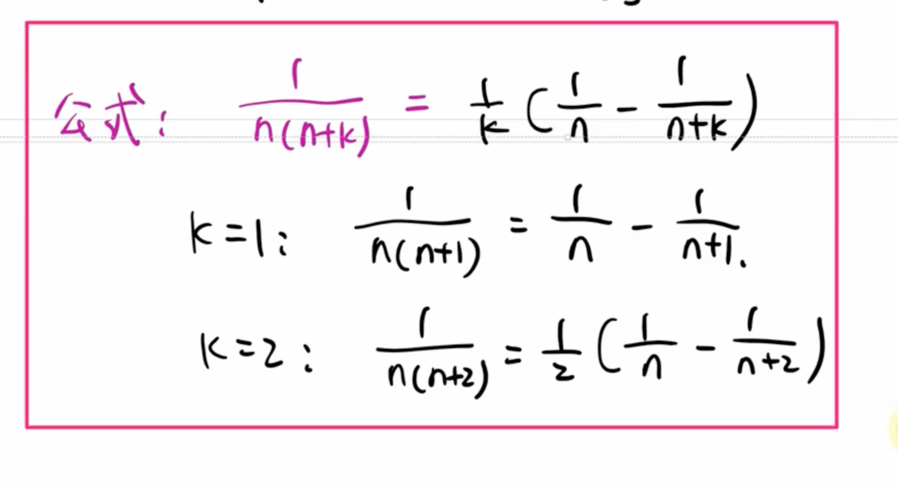 公式: 1/n(n+k) = 1/k (1/n - 1/n+k)
k=1: 1/n(n+1) = 1/n - 1/n+1.
k=2: 1/n(n+2) = 1/2 (1/n - 1/n+2)